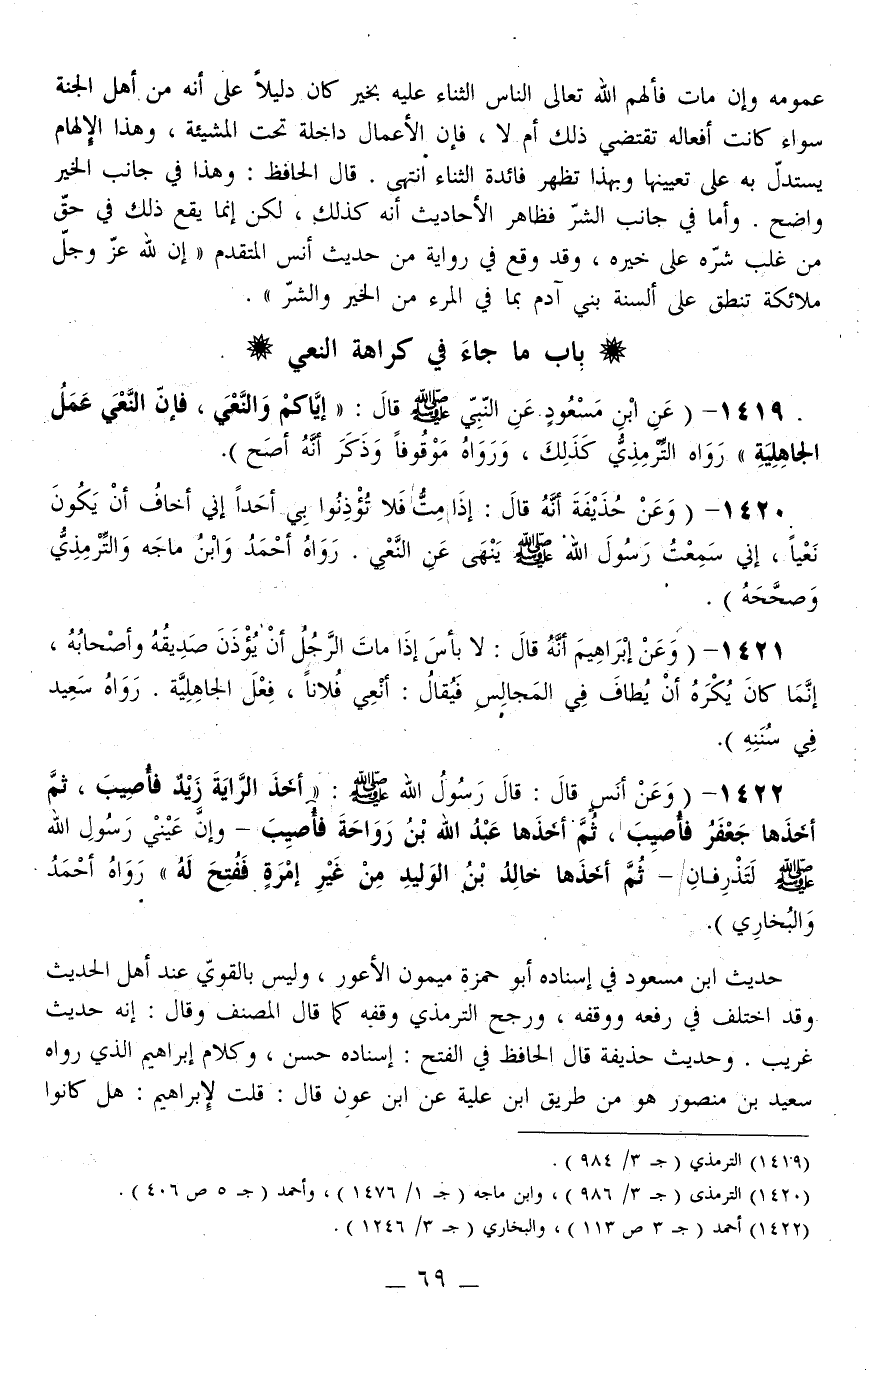 عمومه وإن مات فألهم الله تعالى الناس الثناء عليه بخير كان دليلاً على أنه من أهل الجنة
سواء كانت أفعاله تقتضي ذلك أم لا ، فإن الأعمال داخلة تحت المشيئة ، وهذا الإلهام
يستدلّ به على تعيينها وبهذا تظهر فائدة الثناء انتهى . قال الحافظ : وهذا في جانب الخير
واضح . وأما في جانب الشرّ فظاهر الأحاديث أنه كذلك ، لكن إنما يقع ذلك في حقّ
من غلب شرّه على خيره ، وقد وقع في رواية من حديث أنس المتقدم « إن لله عزّ وجلّ
ملائكة تنطق على ألسنة بني آدم بما في المرء من الخير والشرّ » .
❋ باب ما جاءَ في كراهة النعي ❋
١٤١٩- ( عَنِ ابْنِ مَسْعُودٍ عَنِ النّبِيِّ ﷺ قالَ : « إيَّاكمْ وَالنَّعْيَ ، فإنّ النَّعْيَ عَمَلُ
الجاهِلِيَةِ » رَوَاه التِّرْمِذِيُّ كَذَلِكَ ، وَرَوَاهُ مَوْقُوفاً وَذَكَرَ أنَّهُ أصَح ).
١٤٢٠- ( وَعَنْ حُذَيْفَةَ أنَّهُ قالَ : إذَا مِتُّ فَلا تُؤْذِنُوا بِي أحَداً إني أخافُ أنْ يَكُونَ
نَعْياً ، إني سَمِعْتُ رَسُولَ الله ﷺ يَنْهَى عَنِ النَّعْيِ . رَوَاهُ أحْمَدُ وَابْنُ ماجَه وَالتِّرْمِذِيُّ
وَصحَّحَهُ ) .
١٤٢١- ( وَعَنْ إبْرَاهِيمَ أنَّهُ قالَ : لا بأسَ إذَا ماتَ الرَّجُلُ أنْ يُؤْذَنَ صَدِيقُهُ وأصْحابُهُ ،
إنَّمَا كانَ يُكْرَهُ أنْ يُطافَ فِي المَجالِسِ فَيُقالُ : أنْعِي فُلاناً ، فِعْلَ الجاهِليَّة . رَوَاهُ سَعِيد
فِي سُنَنِهِ ).
١٤٢٢- ( وَعَنْ أنَسٍ قالَ : قالَ رَسُولُ الله ﷺ : « أخَذَ الرَّايَةَ زَيْدٌ فأُصِيبَ ، ثمَّ
أخَذَها جَعْفَرُ فأُصِيبَ ، ثُمَّ أخَذَها عَبْدُ الله بْنُ رَوَاحَةَ فأُصِيبَ - وإنَّ عَيْنَيْ رَسُولِ الله
ﷺ لَتَذْرِفانِ - ثُمَّ أخَذَها خالِدُ بْنُ الوَليدِ مِنْ غَيْرِ إمْرَةٍ فَفُتِحَ لَهُ » رَوَاهُ أحْمَدُ
وَالبُخارِي ).
حديث ابن مسعود في إسناده أبو حمزة ميمون الأعور ، وليس بالقويّ عند أهل الحديث
وقد اختلف في رفعه ووقفه ، ورجح الترمذي وقفه كما قال المصنف وقال : إنه حديث
غريب . وحديث حذيفة قال الحافظ في الفتح : إسناده حسن ، وكلام إبراهيم الذي رواه
سعيد بن منصور هو من طريق ابن علية عن ابن عون قال : قلت لإبراهيم : هل كانوا
(١٤١٩) الترمذي ( جـ ٣/ ٩٨٤ ) .
(١٤٢٠) الترمذي ( جـ ٣/ ٩٨٦ ) ، وابن ماجه ( جـ ١/ ١٤٧٦ ) ، وأحمد ( جـ ٥ ص ٤٠٦ ) .
(١٤٢٢) أحمد ( جـ ٣ ص ١١٣ ) ، والبخاري ( جـ ٣/ ١٢٤٦ ) .
_ ٦٩ _